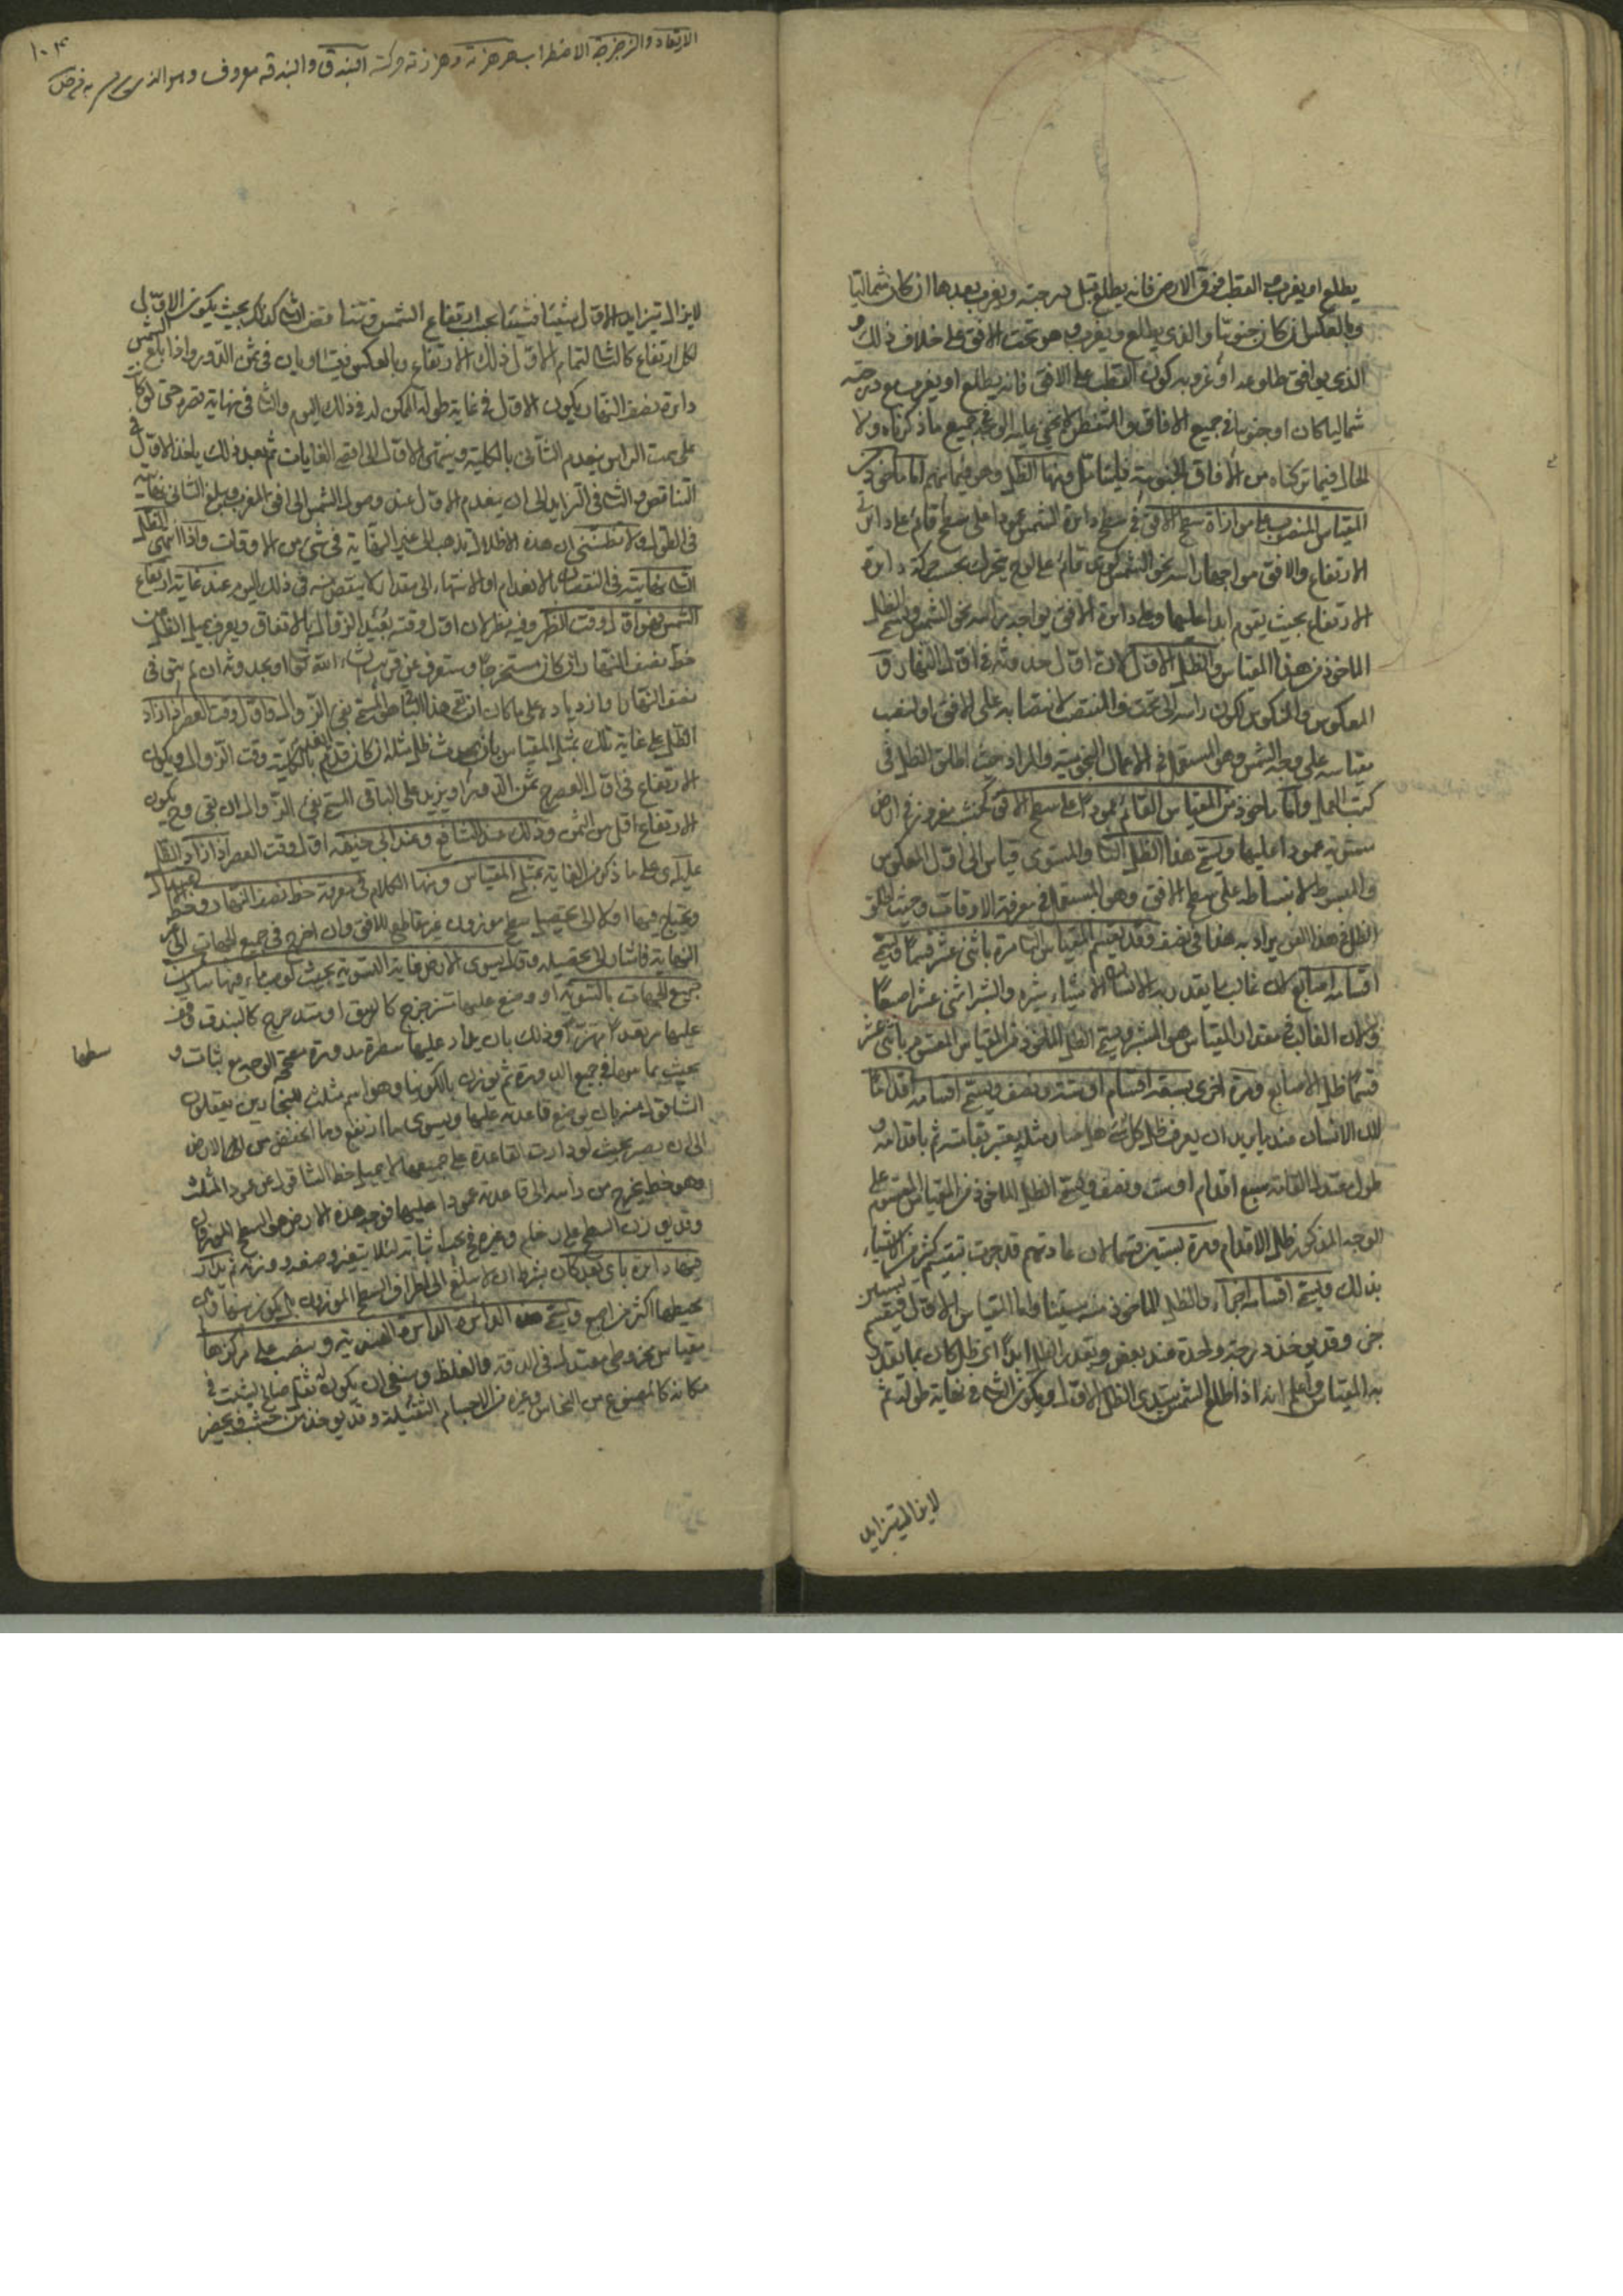 يطلع او يغرب والقطب فوق الارض فانه يطلع قبل درجته ويغرب بعدها ان كان شماليا
وبالعكس ان كان جنوبيا والذي يطلع ويغرب وهو تحت الافق على خلاف ذلك و
الذي يوافق طلوعه او غروبه كون القطب على الافق فانه يطلع او يغرب مع درجته
شماليا كان او جنوبيا في جميع الافاق والمتفطن لا يخفى عليه الوجه في جميع ما ذكرناه ولا
الحال فيما تركناه من الافاق الجنوبية فليتامل ومنها الظل وهو فيما بينهم اما ماخوذ من
المقياس المنصوب على موازاة سطح الافق في سطح دائرة الشمس عمودا على سطح قائم على دائرتي
الارتفاع والافق مواجها راسه نحو الشمس كوتد قائم على لوح يتحرك بحسب حركة دائرة
الارتفاع بحيث يقوم ابدا عليها وعلى دائرة الافق يواجه راسه نحو الشمس ويسمى الظل
الماخوذ من هذا المقياس الظل الاول لان اول حدوثه في اول النهار و
المعكوس والمنكوس لكون راسه الى تحت والمنتصب لانتصابه على الافق او لنصب
مقياسه على وجه الشمس وهو المستعمل في الاعمال النجومية والمراد حيث اطلق الظل في
كتب العمل واما ماخوذ من المقياس القائم عمودا على سطح الافق كخشب مغروز في ارض
مستوية عمودا عليها ويسمى هذا الظل الثاني والمستوي قياسا الى اول المعكوس
والمبسوط لانبساطه على سطح الافق وهو المستعمل في معرفة الاوقات وحيث اطلق
الظل في هذا الفن يراد به هذا في نصف وقد يقسم المقياس تارة باثني عشر قسما ويسمى
اقسامه اصابع لان غالب ما يقدر به الانسان الاشياء شبره والشبر اثنى عشر اصبعا
ولان الغالب في مقدار المقياس هو الشبر ويسمى الظل الماخوذ من المقياس المقسوم باثنى عشر
قسما ظل الاصابع ومرة اخرى بسبعة اقسام او ستة ونصف ويسمى اقسامه اقداما
لان الانسان عند ما يريد ان يعرف ظل كل شئ هل صار مثله يعتبر بقامته ثم باقدامه و
طول معتدل القامة سبع اقدام او ست ونصف ويسمى الظل الماخوذ من المقياس المقسوم على
الوجه المذكور ظل الاقدام ومرة بستين قسما لان عادتهم قد جرت بتقسيم كثير من الاشياء
بذلك ويسمى اقسامه اجزاء والظل الماخوذ منه ستينيا واما المقياس الاول فيقسم بستين
جزء وقد يؤخذ درجة واحدة عند بعض ويقدر الظل ابدا اى ظل كان بما يقدر
به المقياس واعلم انه اذا طلع الشمس يبتدى الظل الاول ويكون الثاني في غاية طوله ثم
لايزال يتزايد
الارتعاد والزجرجة الاضطراب هزهزته وهزازته حركته البندق والبندقة معروف وهو الذى يرمى به
١٠٤
لايزال يتزايد الاول شيئا فشيئا بحسب ارتفاع الشمس ويتناقص الثاني كذلك بحيث يكون الاول
لكل ارتفاع كالثاني لتمام الاول ذلك الارتفاع وبالعكس فيتساويان في ثمن الدور واذا بلغ الشمس
دائرة نصف النهار يكون الاول في غاية طوله الممكن له في ذلك اليوم والثاني في نهاية قصره حتى لو كانت
على سمت الراس ينعدم الثاني بالكلية وينتهى الاول الى اقصى الغايات ثم بعد ذلك ياخذ الاول في
التناقص والثاني في التزايد الى ان ينعدم الاول عند وصول الشمس الى افق المغرب ويبلغ الثاني غايته
في الطول ولا تظنن ان هذه الاظلال يذهب الى غير النهاية في شئ من الاوقات واذا انتهى الظل
الثاني غايته في النقصان بالانعدام او الانتهاء الى مقدار لا ينتقص منه في ذلك اليوم عند غاية ارتفاع
الشمس فهو اول وقت الظهر وفيه نظر لان اول وقته بعيد الزوال بالاتفاق ويعرف بميل الظل عن
خط نصف النهار ان كان مستخرجا وستعرف عن قريب ان شاء الله تعالى او بحدوثه ان لم يبق في
نصف النهار او ازدياده على ما كان ان بقي هذا الباقي هو المسمى بفئ الزوال واول وقت العصر اذا زاد
الظل على غاية تلك بمثل المقياس بان يحدث ظل مثله ان كان قد انعدم الظل بالكلية وقت الزوال ويكون
الارتفاع في اول العصر ح ثمن الدور او يزيد على الباقي المسمى بفئ الزوال ان بقي وح يكون
الارتفاع اقل من الثمن وذلك عند الشافعي وعند ابى حنيفة اول وقت العصر اذا زاد الظل
عليه اى على ما ذكر من الغاية بمثلى المقياس ومنها الكلام في معرفة خط نصف النهار وخط
ويحتاج فيها اولا الى تحصيل سطح موزون غير مقاطع للافق وان اخرج في جميع الجهات الى غير
النهاية فاشار الى تحصيله وقال يسوى الارض غاية التسوية بحيث لو صب ماء فيها سال من
جميع الجهات بالتسوية او وضع عليها مترجرج كالزيبق او متدحرج كالبندق وقف
عليها مرتعدا مهتزا وذلك بان يدار عليها مسطرة مدورة مصححة الوجه مع ثبات و
بحيث يماسها في جميع الدورة ثم يوزن بالكونيا وهو اسم مثلث للنجارين يعلقون
الشاقول منه بان يوضع قاعدته عليها ويسوى ما ارتفع وما انخفض من الارض
الى ان يصير بحيث لو دارت القاعدة على جميعها لا يميل خط الشاقول عن عمود المثلث
وهو خط يخرج من راسه الى قاعدته عمودا عليها فوجه هذه الارض هو السطح الموزون
وقد يوزن السطح على رخام وغيره في ثبات لئلا يتغير وضعه ووزنه ثم يدار
فيها دائرة باى بعد كان بشرط ان لا يبلغ الى اطراف السطح الموزون بل يكون بينها وبين
محيطها اكثر من اصبع ويسمى هذه الدائرة الدائرة الهندية وينصب على مركزها
مقياس مخروطى معتدل في الدقة والغلظ وينبغى ان يكون له ثقل صالح ليثبت في
مكانه كالمصنوع من النحاس وغيره من الاجسام الثقيلة وقد يؤخذ من خشب ويحفر
سطحها